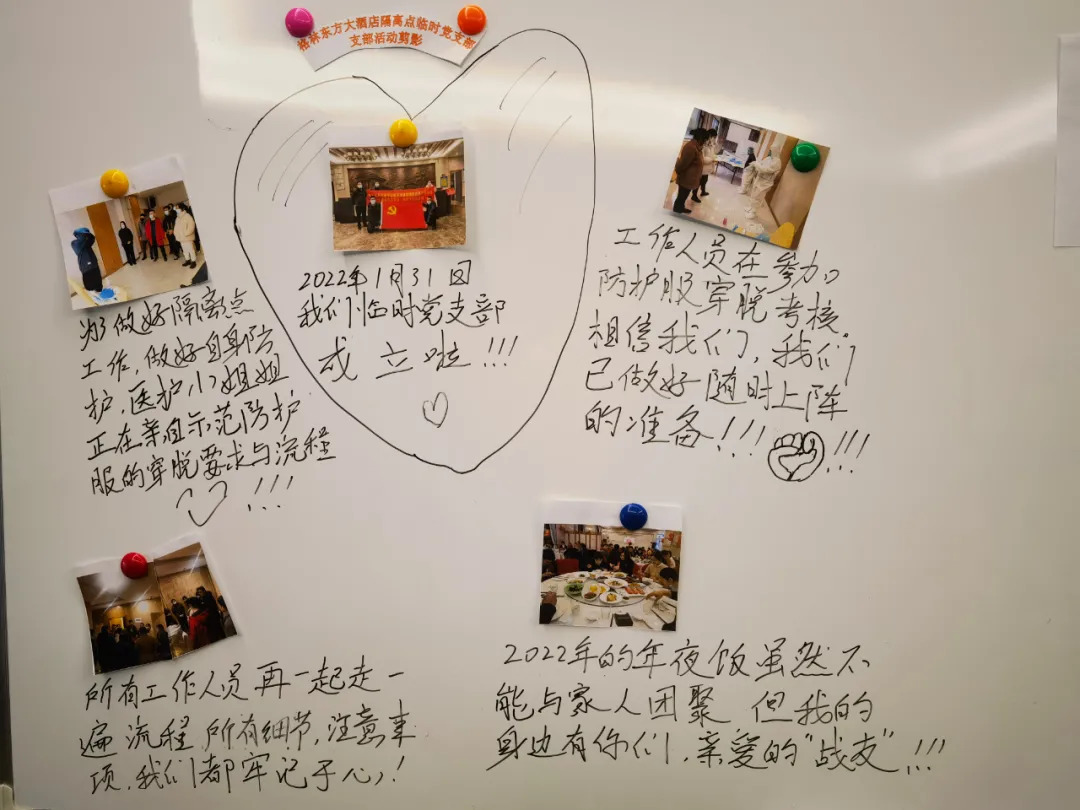 格林东方大酒店隔离点临时党支部
支部活动剪影
2022年1月31日
我们临时党支部
成立啦!!!
为了做好隔离点
工作,做好自身防
护,医护小姐姐
正在亲自示范防护
服的穿脱要求与流程
!!!
工作人员在参加
防护服穿脱考核
相信我们,我们
已做好随时上阵
的准备!!! !!!
所有工作人员再一起走一
遍流程 所有细节,注意事
项,我们都牢记于心!
2022年的年夜饭虽然不
能与家人团聚 但我的
身边有你们,亲爱的“战友”!!!